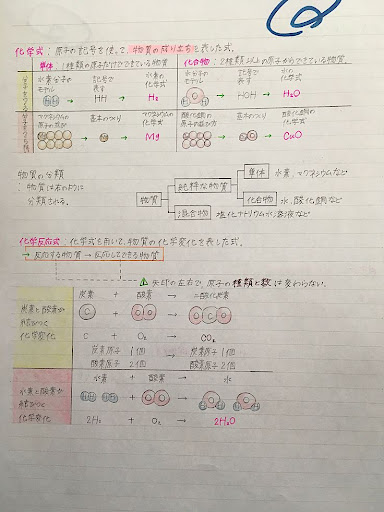 化学式：原子の記号を使って、物質の成り立ちを表した式。
単体：1種類の原子だけでできている物質
化合物：2種類以上の原子からできている物質。
分子をつくる
水素分子のモデル
記号で表す
水素の化学式
水分子のモデル
記号で表す
水の化学式
HH → HH → H₂
HOH → HOH → H₂O
マグネシウムの原子の並び
基本のつくり
マグネシウムの化学式
酸化銅の原子の並び方
基本のつくり
酸化銅の化学式
→ Mg → Mg
→ → CuO
物質の分類
物質は右のように
分類される。
物質
純粋な物質
単体 水素、マグネシウムなど
化合物 水、酸化銅など
混合物 塩化ナトリウム水溶液など
化学反応式：化学式を用いて、物質の化学変化を表した式。
→ 反応する物質 → 反応してできる物質
矢印の左右で、原子の種類と数は変わらない。
炭素と酸素が
結びつく
化学変化
炭素 + 酸素 → 二酸化炭素
C + OO → OCO
C + O₂ → CO₂
炭素原子 1個 → 炭素原子 1個
酸素原子 2個 酸素原子 2個
水素と酸素が
結びつく
化学変化
水素 + 酸素 → 水
HH HH + OO → HOH HOH
2H₂ + O₂ → 2H₂O